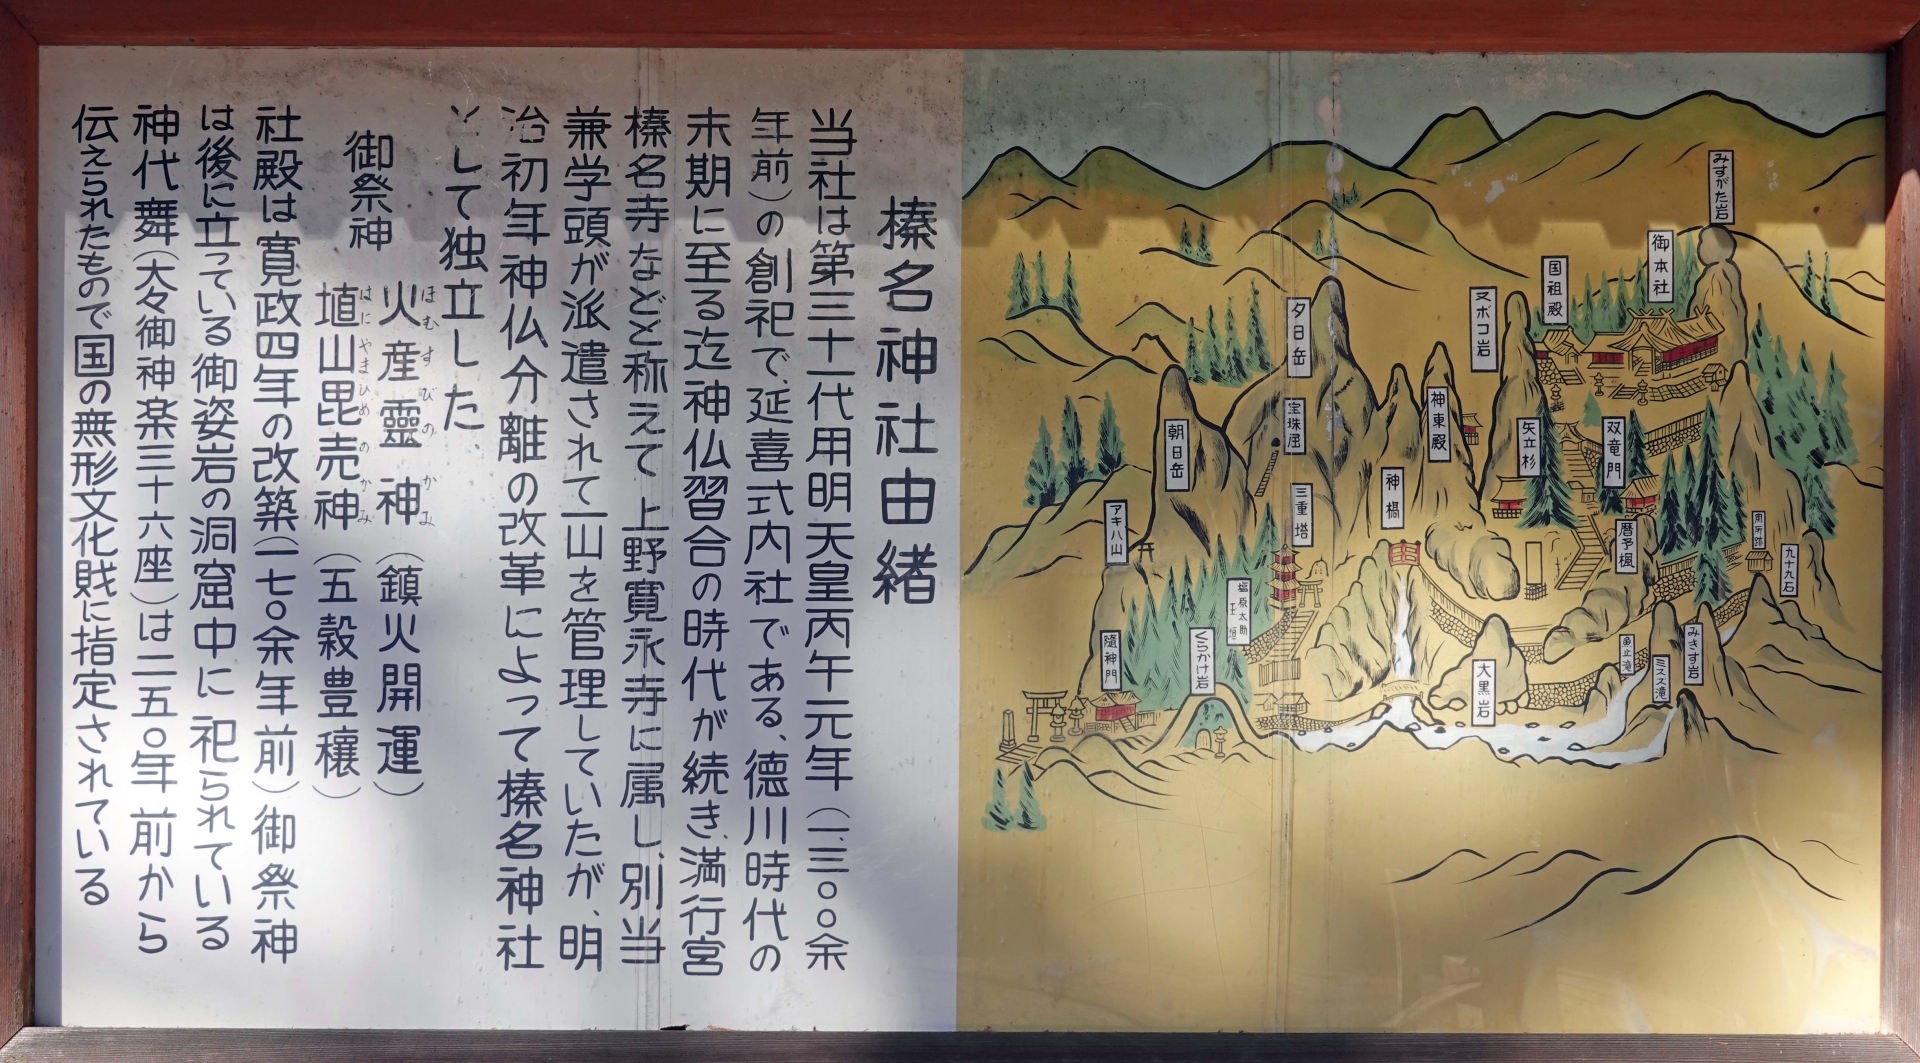 榛名神社由緒
当社は第三十一代用明天皇丙午元年（一、三〇〇余
年前）の創祀で、延喜式内社である、徳川時代の
末期に至る迄神仏習合の時代が続き、満行宮
榛名寺などと称えて上野寛永寺に属し、別当
兼学頭が派遣されて一山を管理していたが、明
治初年神仏分離の改革によって榛名神社
として独立した、
御祭神
火産靈神（鎮火開運）
ほむすびのかみ
埴山毘売神（五穀豊穣）
はにやまひめのかみ
社殿は寛政四年の改築（一七〇余年前）御祭神
は後に立っている御姿岩の洞窟中に祀られている
神代舞（大々御神楽三十六座）は二五〇年前から
伝えられたもので国の無形文化財に指定されている
みすがた岩
御本社
国祖殿
ヌボコ岩
夕日岳
神東殿
宝珠窟
朝日岳
矢立杉
双竜門
神橋
三重塔
アキハ山
暦予楓
九十九石
塩原太助
玉垣
みきす岩
魚止滝
ミスズ滝
くらかけ岩
随神門
大黒岩